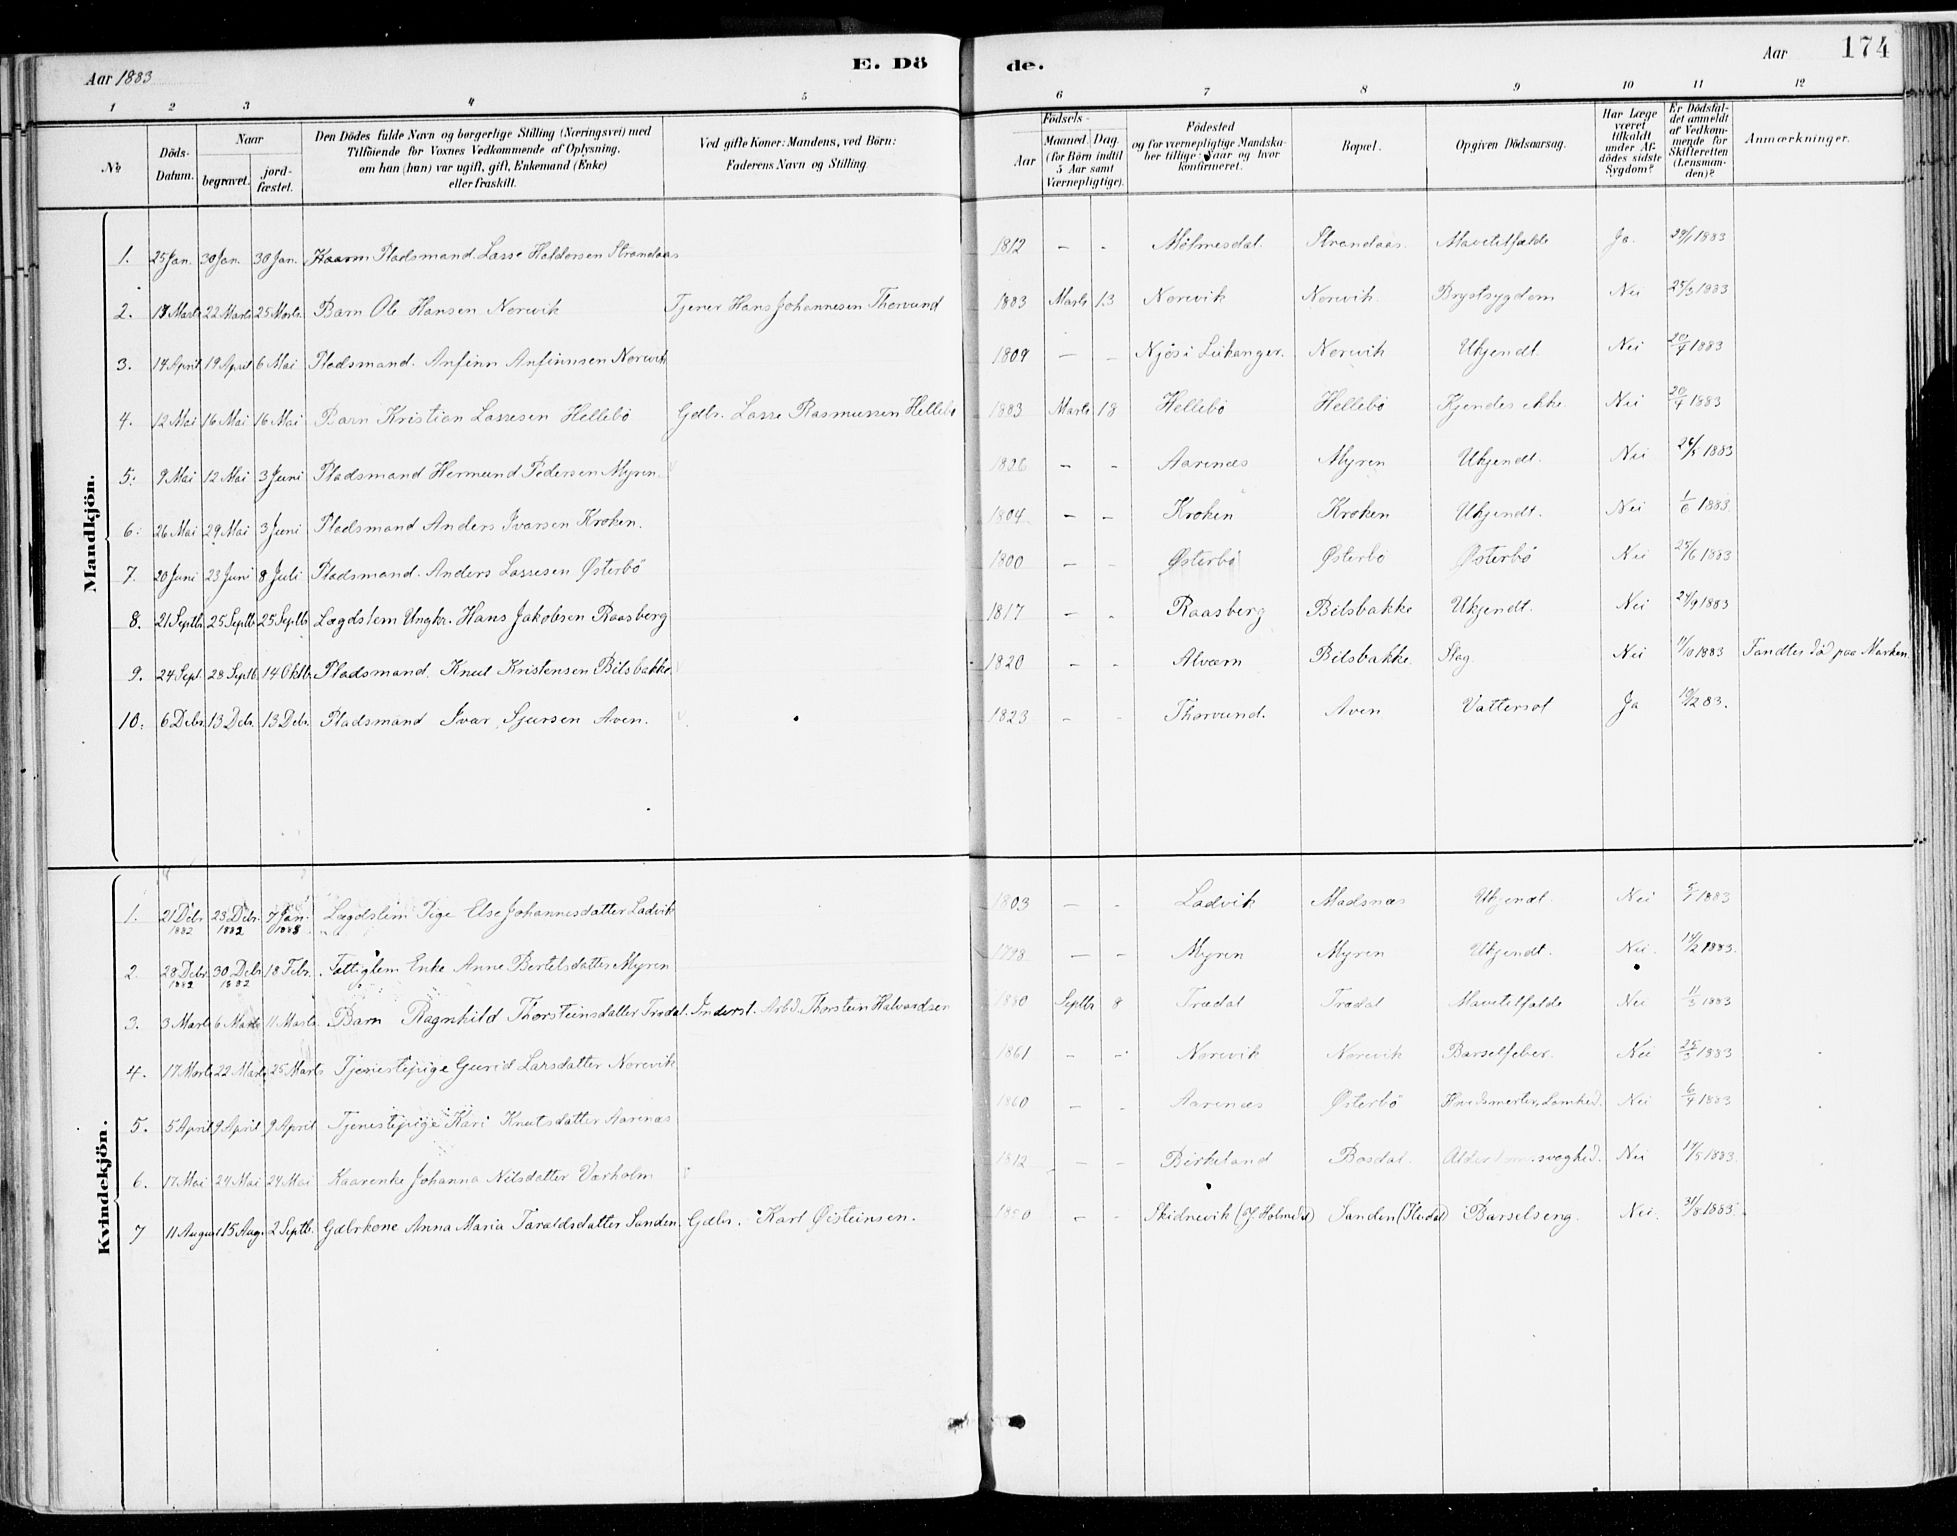 Aar 1883 E. Dö de. Aar 174
1 2 3 4 5 6 7 8 9 10 11 12
No
Döds-Datum.
Naar
begravet.
jord-fæstet.
Den Dödes fulde Navn og borgerlige Stilling (Næringsvei) med
Tilföiende for Voxnes Vedkommende af Oplysning,
om han (hun) var ugift, gift, Enkemand (Enke)
eller fraskilt.
Ved gifte Koner: Mandens, ved Börn:
Faderens Navn og Stilling
Födsels-
Aar
Maaned. Dag.
(for Börn indtil
5 Aar samt
Værnepligtige).
Födested
og for værnepligtige Mandska-
ber tillige: Naar og hvor
konfirmeret.
Bopæl.
Opgiven Dödsaarsag.
Har Læge
været
tilkaldt
under Af-
dödes sidste
Sygdom?
Er Dödsfal-
det anmeldt
af Vedkom-
mende for
Skifteretten
(Lensman-
den)?
Anmærkninger.
Mandkjön.
1. 25 Jan. 30 Jan. 30 Jan. Pladsmand Lasse Haldorsen Strandaas 1812 — - Mølmesdal. Strandaas. Mavetilfælde Ja. 29/1 1883
2. 18 Marts 22 Marts 25 Marts Barn Ole Hansen Norevik Tjener Hans Johannesen Thorvund 1883 Marts 13 Norevik Norevik Brystsygdom Nei 25/3 1883
3. 14 April 19 April 6 Mai Pladsmand. Anfinn Anfinnsen Norevik 1809 — - Njøs i Leikanger. Norevik Ukjendt Nei 20/4 1883
4. 12 Mai 16 Mai 16 Mai Barn Kristian Lassesen Hellebö Gdbr. Lasse Rasmussen Hellebö 1883 Marts 18 Hellebö Hellebö Kjendes ikke Nei 1883
5. 9 Mai 12 Mai 3 Juni Pladsmand Hermund Pedersen Myren. 1806 - - Aarenæs Myren Ukjendt. Nei 26/5 1883
6. 26 Mai 29 Mai 3 Juni Pladsmand Anders Ivarsen Kroken. 1804 - - Kroken Kroken Ukjendt. Nei 1/6 1883
7. 20 Juni 23 Juni 8 Juli Pladsmand. Anders Lassesen Østerbö 1800 - - Østerbö Østerbö Østerbö Nei 25/6 1883
8. 21 Septb. 25 Septb. 25 Septb. Lægdslem Ungkr. Hans Jakobsen Raasberg 1817 - - Raasberg Bilsbakke Ukjendt. Nei 24/9 1883
9. 24 Sept. 28 Septb. 14 Oktb. Pladsmand. Knut Kristensen Bilsbakke 1820 - - Alværn Bilsbakke. Slag Nei 1883 Fandtes död paa Marken.
10. 6 Debr. 13 Debr. 13 Debr. Pladsmand Ivar Sjursen Aven. 1823 - - Thorvund. Aven Vattersot Ja 83.
Kvindekjön.
1. 21 Debr 1882 23 Debr. 1882 7 Jan. 1883 Lægdslem Pige Else Johannesdatter Ladvik 1803 — - Ladvik Madsnæs Ukjendt Nei 5/1 1883
2. 28 Debr 1882 30 Debr 1882 18 Febr. Fattiglem Enke Anne Bertelsdatter Myren 1798 — - Myren Myren Ukjendt. Nei. 14/2 1883.
3. 3 Marts 6 Marts 11 Marts. Barn Ragnhild Thorsteinsdatter Trædal. Inderst. Arbd. Thorstein Halvardsen 1880 Septbr 8 Trædal Trædal Mavetilfælde Nei 11/3 1883
4. 17 Marts 22 Marts 25 Marts Tjenestepige Gurid Larsdatter Norevik 1861 - - Norevik Norevik Barselfeber Nei 25/3 1883
5. 5 April 9 April 9 April Tjenestepige Kari Knutsdatter Aarenæs 1860 - - Aarenæs Østerbö Hovedsmerter, Lamhed. Nei 6/4 1883
6. 17 Mai 24 Mai 24 Mai Kaarenke Johanna Nilsdatter Værholm 1812 - - Birkeland Bosdal. Alderdomssvaghed. Nei 17/5 1883.
7 11 August 15 Aug. 2 Septb. Gdbrkone Anna Maria Taraldsdatter Sanden. Gdbr. Karl Øisteinsen. - - Skidnevik Sanden Barselseng. Nei. 31/8 1883.